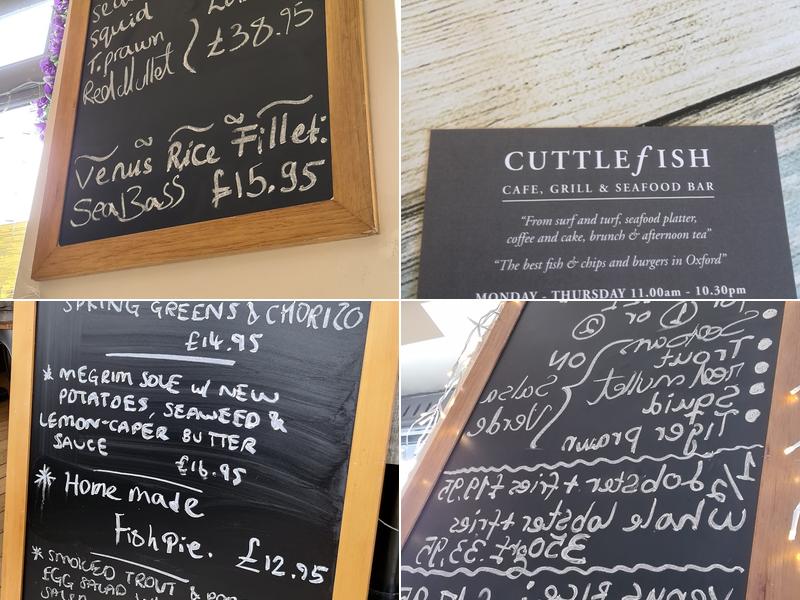 squid
T.prawn
Red Mullet } £38.95
Venus Rice Fillet:
SeaBass £15.95
CUTTLEfISH
CAFE, GRILL & SEAFOOD BAR
"From surf and turf, seafood platter,
coffee and cake, brunch & afternoon tea"
"The best fish & chips and burgers in Oxford"
MONDAY - THURSDAY 11.00am - 10.30pm
SPRING GREENS & CHORIZO
£14.95
* MEGRIM SOLE w/ NEW
POTATOES, SEAWEED &
LEMON-CAPER BUTTER
SAUCE
£16.95
* Home made
Fish Pie. £12.95
* SMOKED TROUT &
EGG SALAD
for ① or ②
• Seabass
• Trout on
• Red mullet Salsa
• Squid Verde
• Tiger prawn
1/2 lobster + fries £19.95
Whole lobster + fries
350gr £.33,95